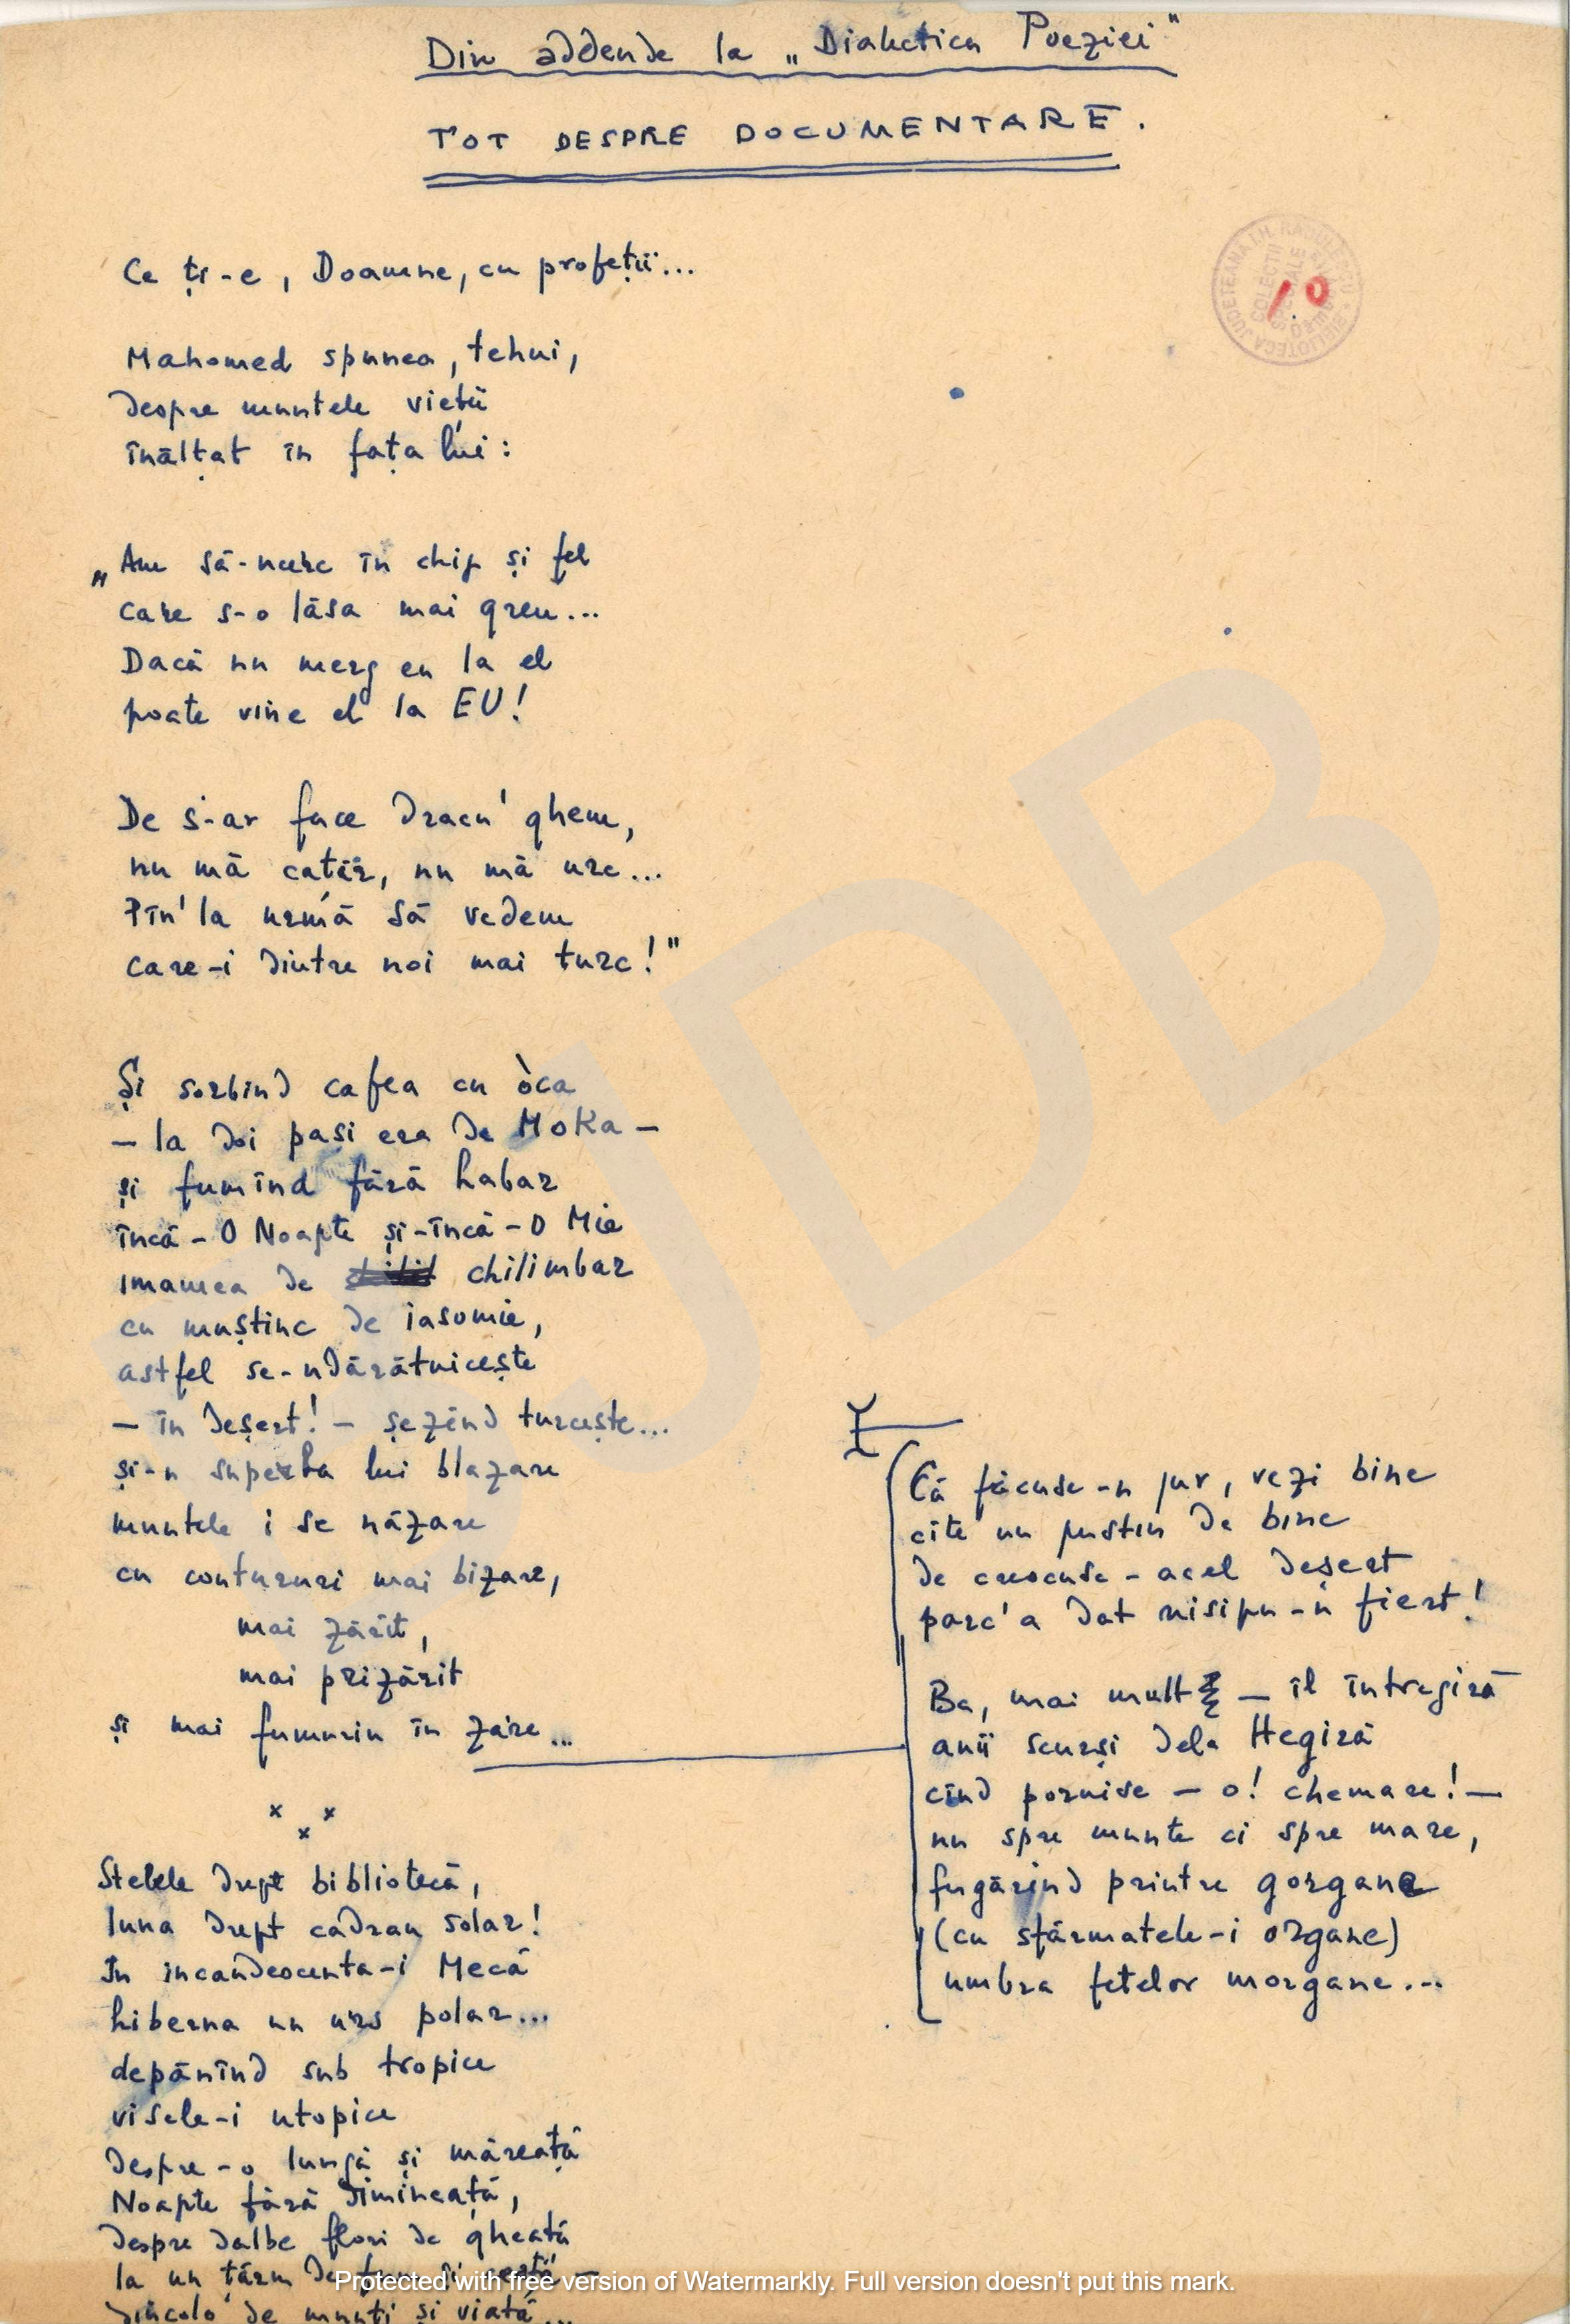 Din addende la „Dialectica Poeziei"
TOT DESPRE DOCUMENTARE.
Ce ți-e, Doamne, cu profeții...
Mahomed spunea, tehui,
despre muntele vieții
înălțat în fața lui:
„Am să-ncerc în chip și fel
care s-o lăsa mai greu...
Dacă nu merg eu la el
poate vine el la EU!
De s-ar face dracu' ghem,
nu mă cațăr, nu mă urc...
Pîn' la urmă să vedem
care-i dintre noi mai turc!"
Și sorbind cafea cu òca
– la doi pași era de Moka –
și fumînd fără habar
încă-O Noapte și-încă-O Mie
imamea de chilimbar
cu muștiuc de iasomie,
astfel se-ndărătnicește
– în deșert! – șezînd turcește...
și-n superba lui blazare
muntele i se năzare
cu contururi mai bizare,
mai zărit,
mai prizărit
și mai fumuriu în zare...
Că făcuse-n jur, vezi bine
cîte un pustiu de bine
de crescuse-acel deșert
parc'a dat nisipu-n fiert!
Ba, mai mult – îl întregiră
anii scurși dela Hegiră
cînd pornise – o! chemare! –
nu spre munte ci spre mare,
fugărind printre gorgane
(cu sfărmatele-i organe)
umbra fetelor morgane...
x x
x
Stelele drept bibliotecă,
luna drept cadran solar!
În incandescenta-i Mecă
hiberna un urs polar...
depănînd sub tropice
visele-i utopice
despre-o lungă și măreață
Noapte fără dimineață,
despre dalbe flori de gheață
la un țărm de
dincolo de munți și viață...
JUDEȚEANA I.H. RĂDULESCU
BIBLIOTECA
COLECȚII
10
JDB
Protected with free version of Watermarkly. Full version doesn't put this mark.